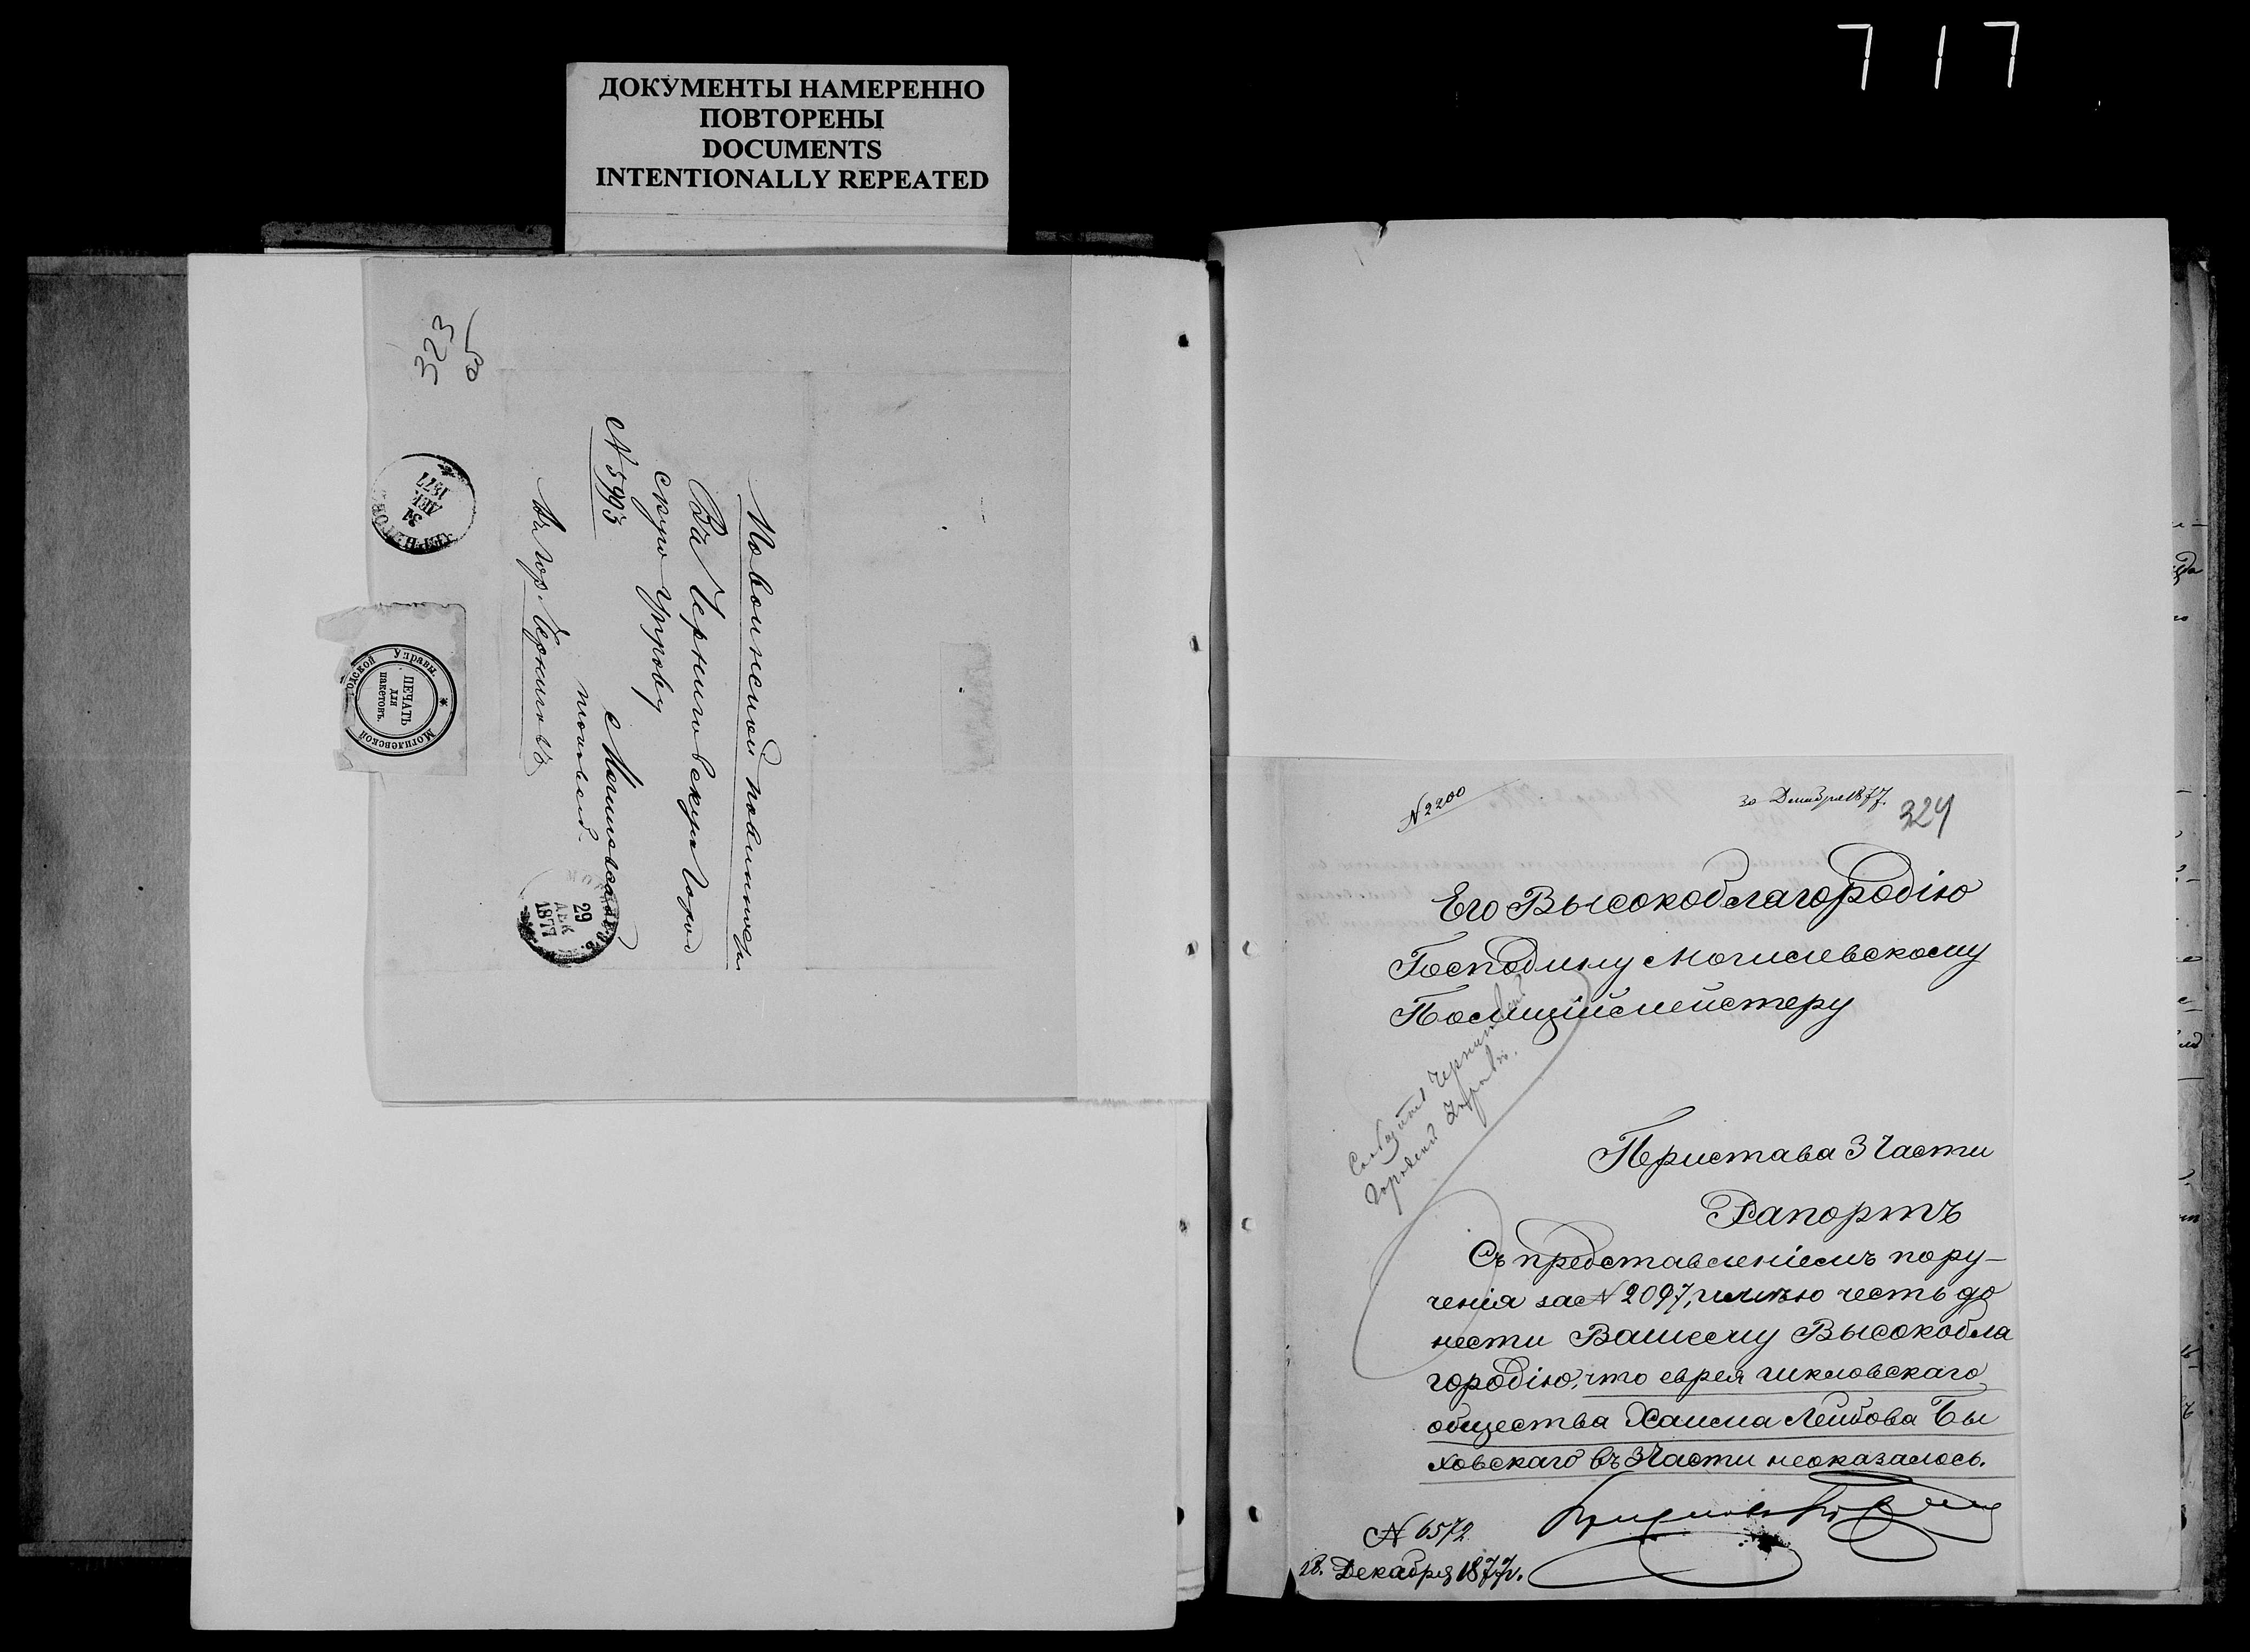 717
ДОКУМЕНТЫ НАМЕРЕННО
ПОВТОРЕНЫ
DOCUMENTS
INTENTIONALLY REPEATED
323
об
По воинской повинности
Въ Черниговскую Город
скую Управу
№ 5993
с Могилевской
въ Гор. Черниговъ
ДЕК.
1877
Могилевской Городской Управы
ПЕЧАТЬ
для
пакетовъ.
29
ДЕК
1877
№ 2200
30 Декабря 1877.
324
Его Высокоблагородію
Господину Могилевскому
Полиціймейстеру
Сообщить Черниговской
Городской Управѣ.
Пристава 3 Части
Рапортъ
Съ представленіемъ пору-
ченія за № 2097, имѣю честь до
нести Вашему Высокобла
городію, что еврея шкловскаго
общества Хаима Лейбова Бы
ховскаго въ 3 Части неоказалось.
№ 6572
28. Декабря 1877 г.